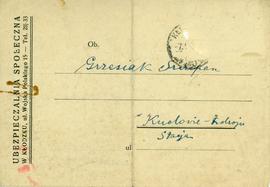 UBEZPIECZALNIA SPOŁECZNA
W KŁODZKU, ul. Wojska Polskiego 15 — Tel. 32 33
Ob.
Grzesiak Szczepan
Kudowie-Zdroju
Stacja
ul